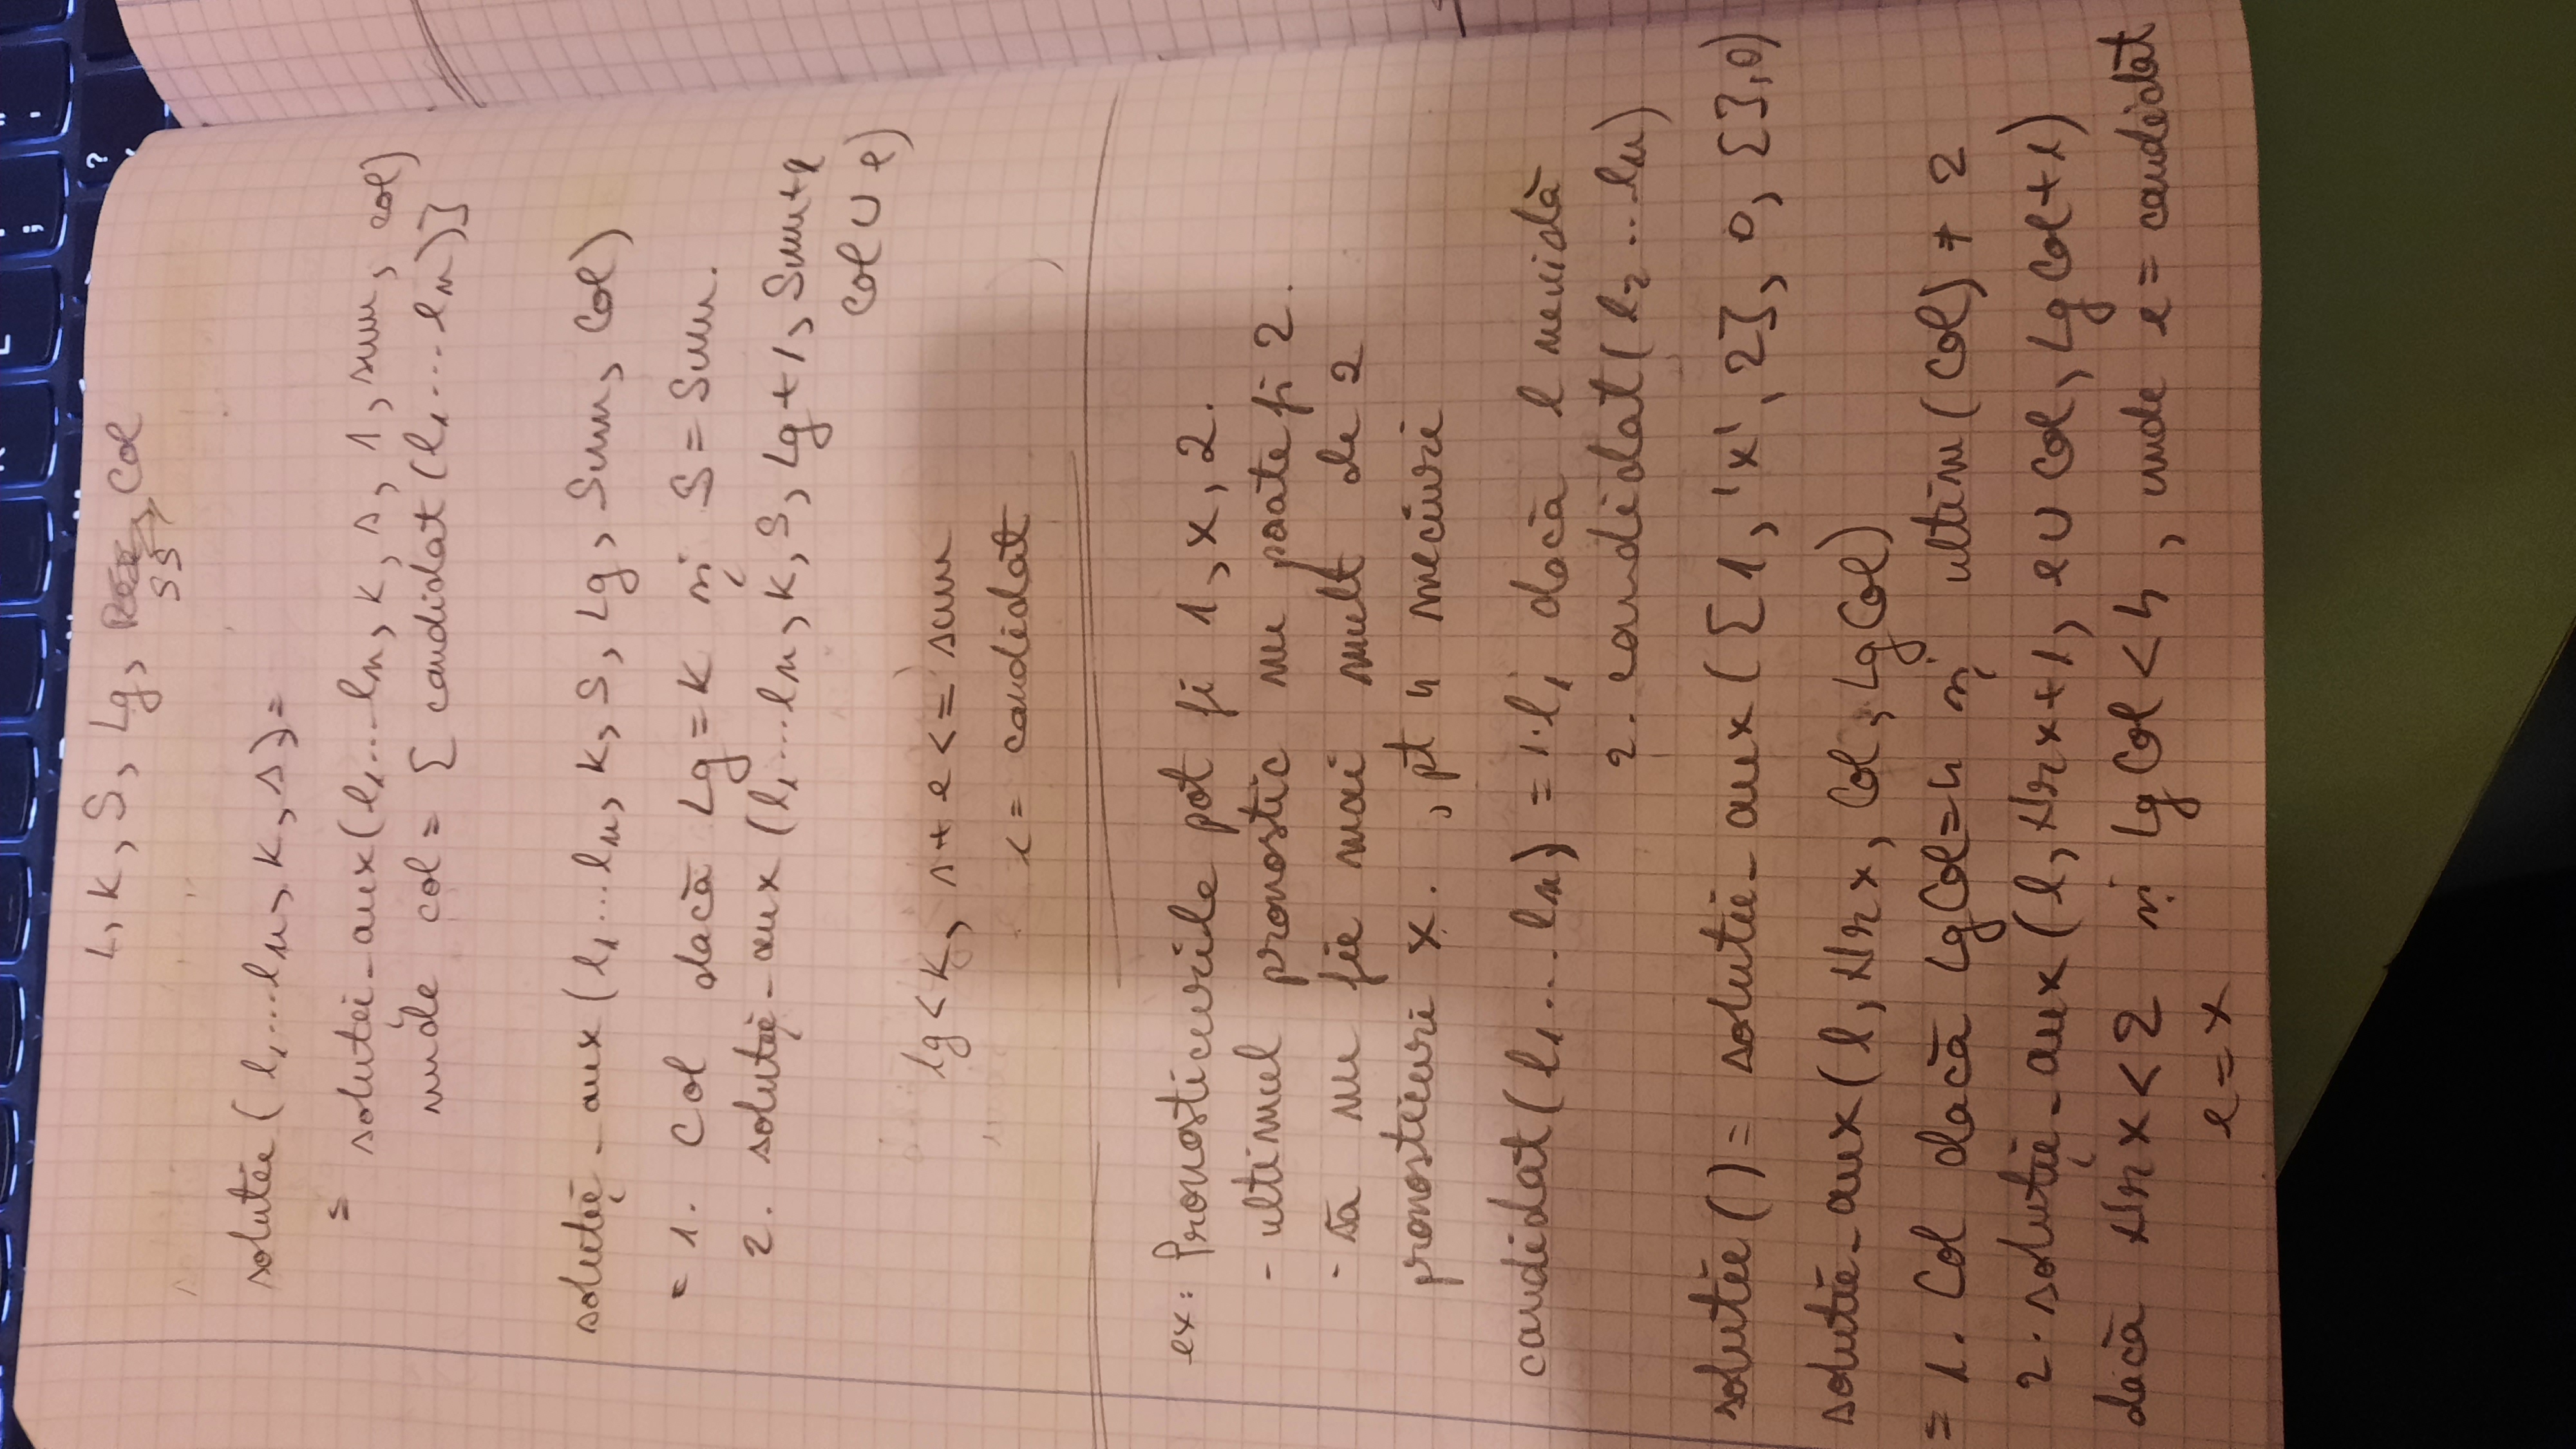 L, K, S, Lg, Col
SS
soluție (l₁...lₙ, K, s) =
= soluție_aux(l₁...lₙ, K, s, 1, sum, col)
unde col = [ candidat (l₁...lₙ)]
soluție_aux (l₁...lₙ, K, S, Lg, Sum, Col)
= 1. Col dacă Lg = K și S = Sum.
2. soluție_aux (l₁...lₙ, K, S, Lg+1, Sum+e
Col ∪ e)
lg < K, s + e <= sum
e = candidat
ex: Pronosticurile pot fi 1, x, 2.
- ultimul pronostic nu poate fi 2.
- să nu fie mai mult de 2
pronosticuri x. , pt 4 meciuri
candidat (l₁...lₙ) = 1. l₁ dacă l nevidă
2. candidat (l₂...lₙ)
soluție () = soluție_aux ([1, 'x', 2], 0, [], 0)
soluție_aux (l, Nrx, Col, LgCol)
= 1. Col dacă LgCol=4 și ultim (Col) ≠ 2
2. soluție_aux (l, Nrx+1, e ∪ Col, LgCol+1)
dacă Nrx < 2 și LgCol < 4, unde e = candidat
e = x
?
;